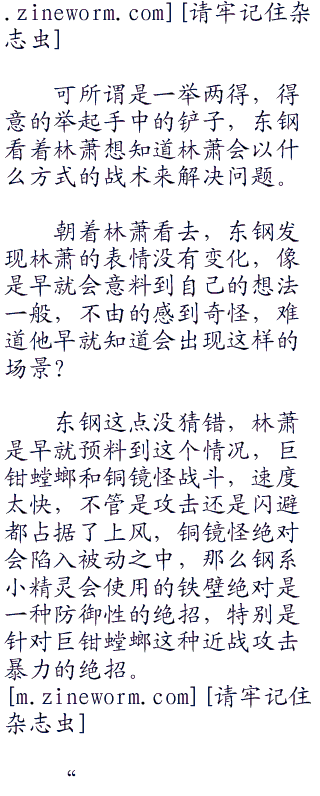 .zineworm.com][请牢记住杂
志虫]
可所谓是一举两得，得
意的举起手中的铲子，东钢
看着林萧想知道林萧会以什
么方式的战术来解决问题。
朝着林萧看去，东钢发
现林萧的表情没有变化，像
是早就会意料到自己的想法
一般，不由的感到奇怪，难
道他早就知道会出现这样的
场景？
东钢这点没猜错，林萧
是早就预料到这个情况，巨
钳螳螂和铜镜怪战斗，速度
太快，不管是攻击还是闪避
都占据了上风，铜镜怪绝对
会陷入被动之中，那么钢系
小精灵会使用的铁壁绝对是
一种防御性的绝招，特别是
针对巨钳螳螂这种近战攻击
暴力的绝招。
[m.zineworm.com][请牢记住
杂志虫]
“